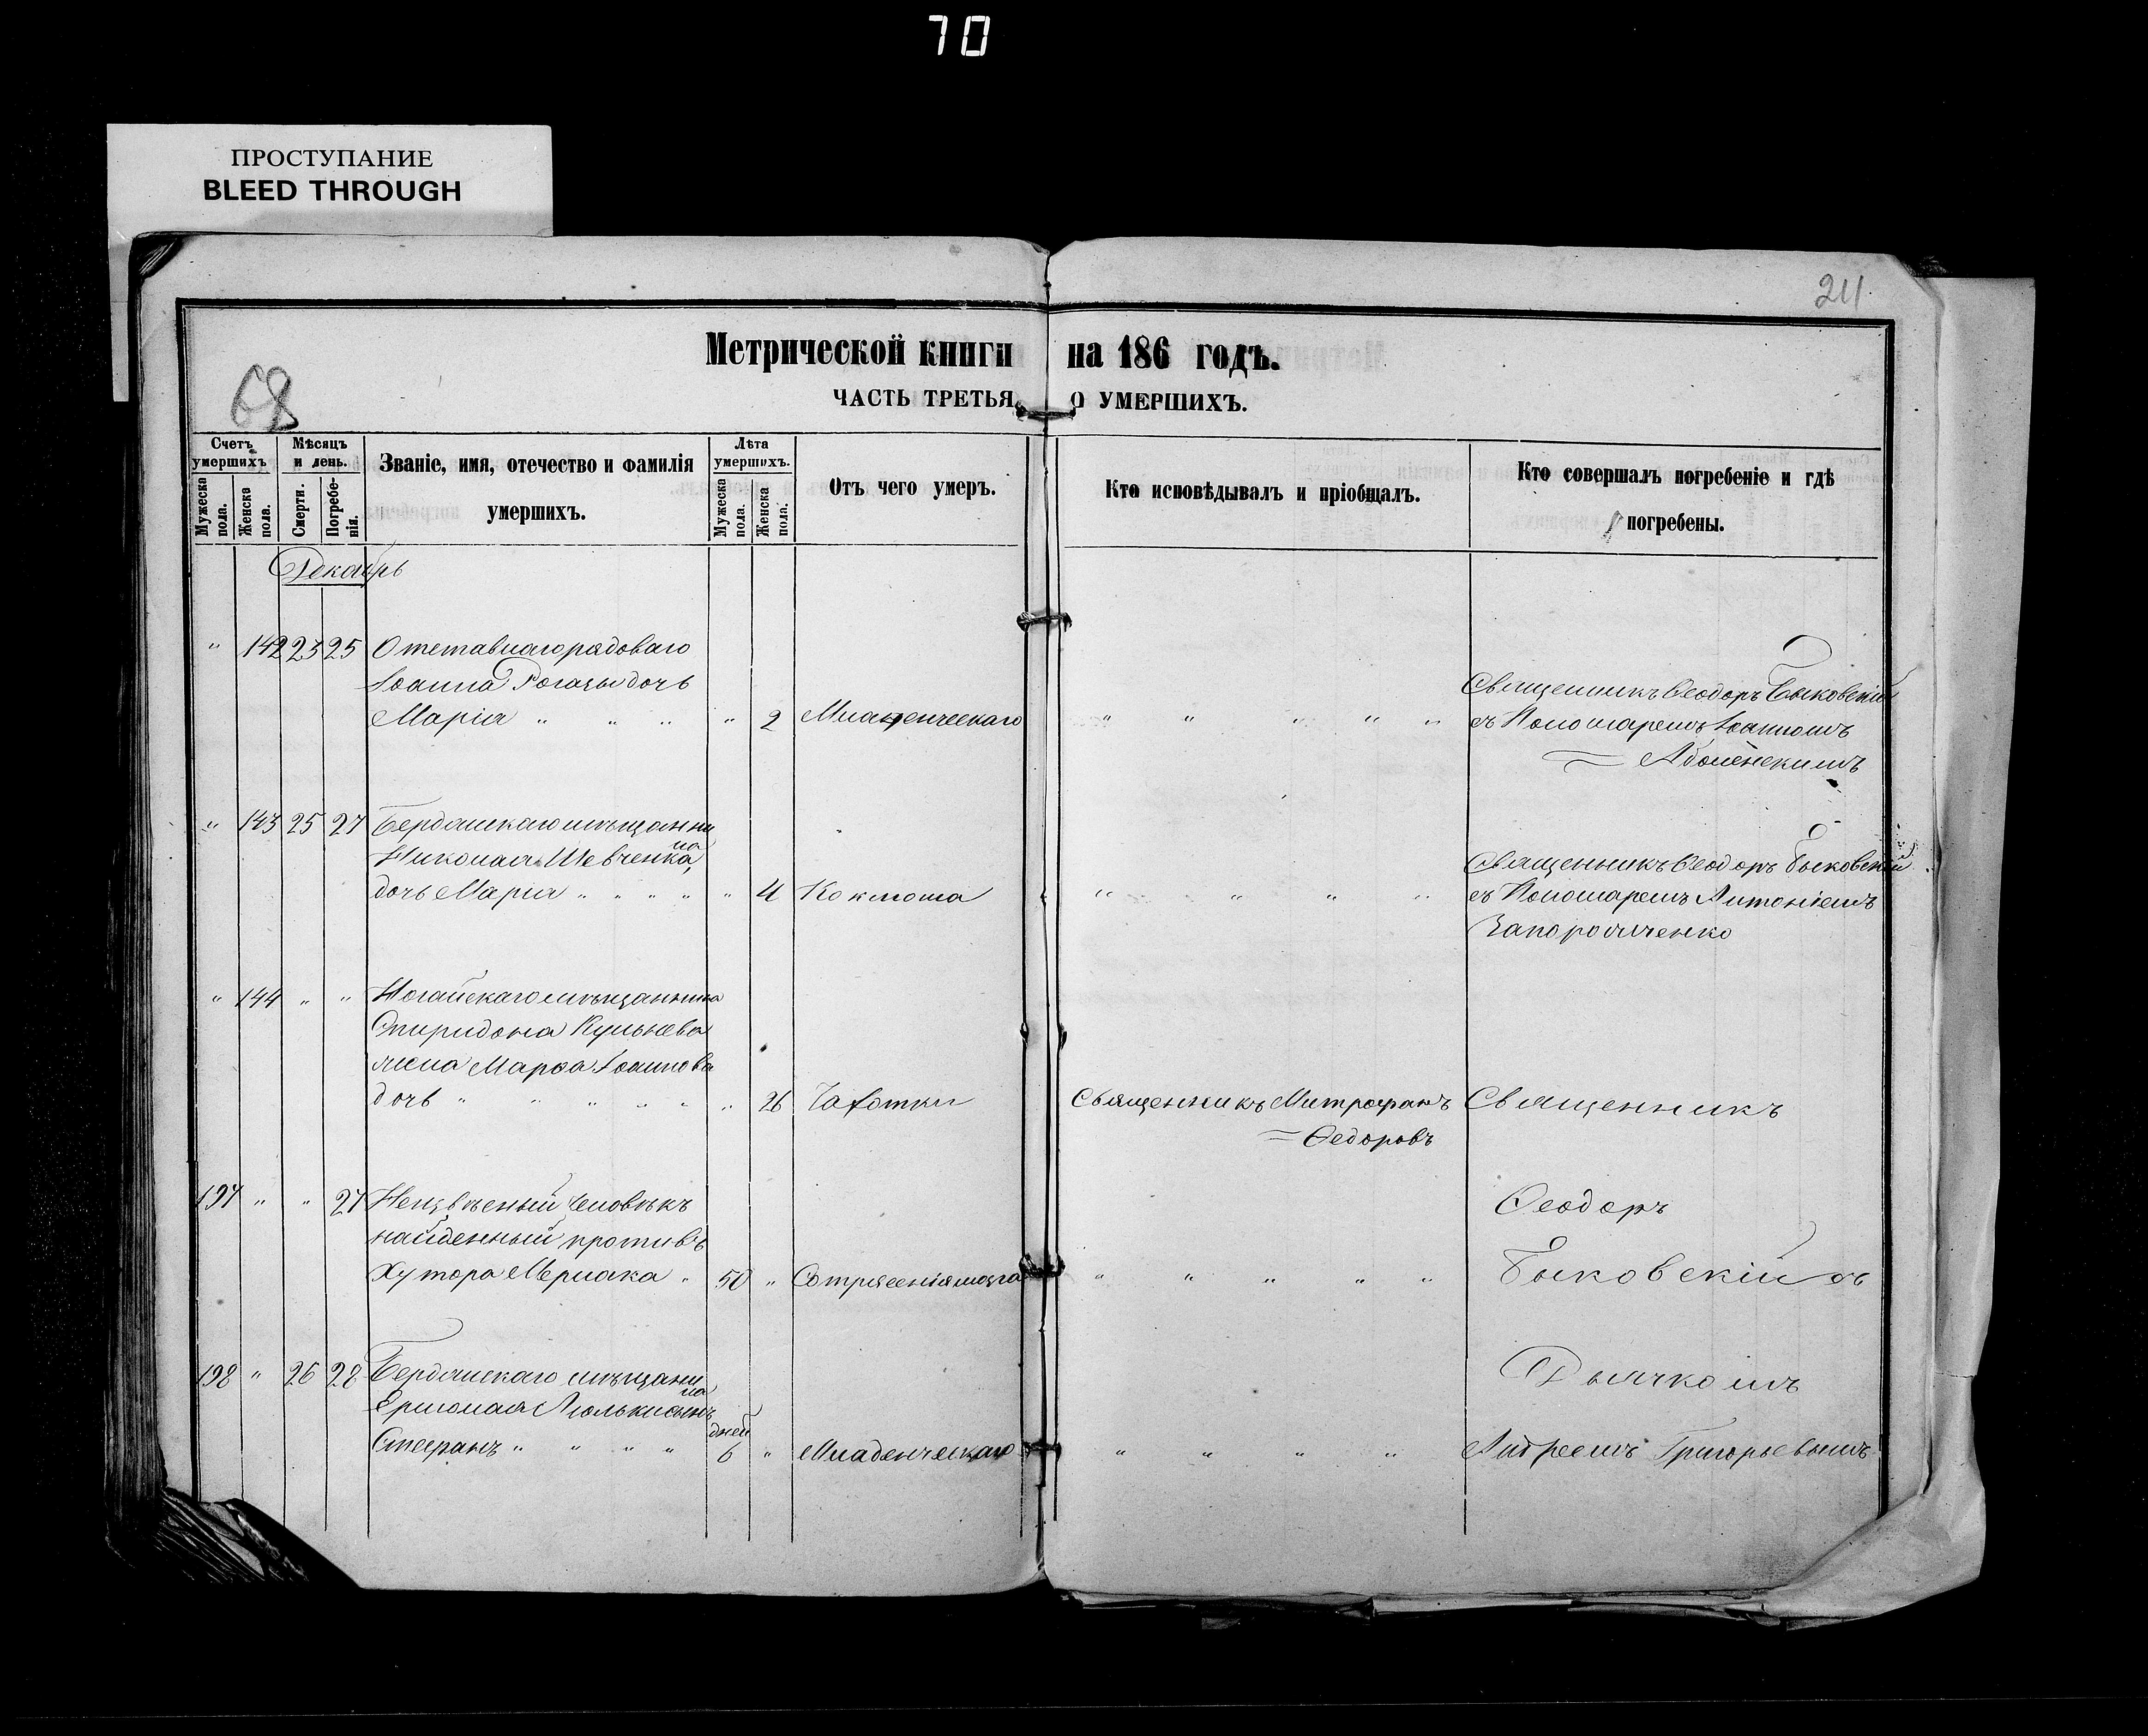 70
ПРОСТУПАНИЕ
BLEED THROUGH
211
Метрической книги на 186 годъ.
68
ЧАСТЬ ТРЕТЬЯ, О УМЕРШИХЪ.
Счетъ умершихъ
Мужеска пола.
Женска пола.
Мѣсяцъ и день.
Смерти.
Погребенія.
Званіе, имя, отечество и фамилія умершихъ.
Лѣта умершихъ.
Мужеска пола.
Женска пола.
Отъ чего умеръ.
Кто исповѣдывалъ и пріобщалъ.
Кто совершалъ погребеніе и гдѣ погребены.
Декабрь
" 142 23 25 Отставнаго рядоваго
Іоанна дочь
Марія " " " " 2 Младенческаго " " " " "
Священникъ Ѳеодоръ Быковскій
съ Пономаремъ Іоанномъ
" 143 25 27 Бердянскаго мѣщанина
Николая Шевченка,
дочь Марія " " " " " 4 Коклюша " " " "
Священникъ Ѳеодоръ Быковскій
съ Пономаремъ Антоніемъ
Запорожченко
" 144 " " Ногайскаго мѣщанина
Спиридона Кульнева
жена Марѳа Іоаннова
дочь " " " " " " 26 Чахотки Священникъ Митрофанъ Священникъ
Ѳедоровъ
197 " " 27 Неизвѣсный Человѣкъ Ѳеодоръ
найденный противъ
Хутора " 50 " Сотрясенія мозга " " " " " Быковскій съ
198 " 26 28 Бердянскаго мѣщанина Дьячкомъ
Ермолая сынъ
Стефанъ " " " " дней 6 " Младенческаго " " " " Андреемъ Григорьевымъ